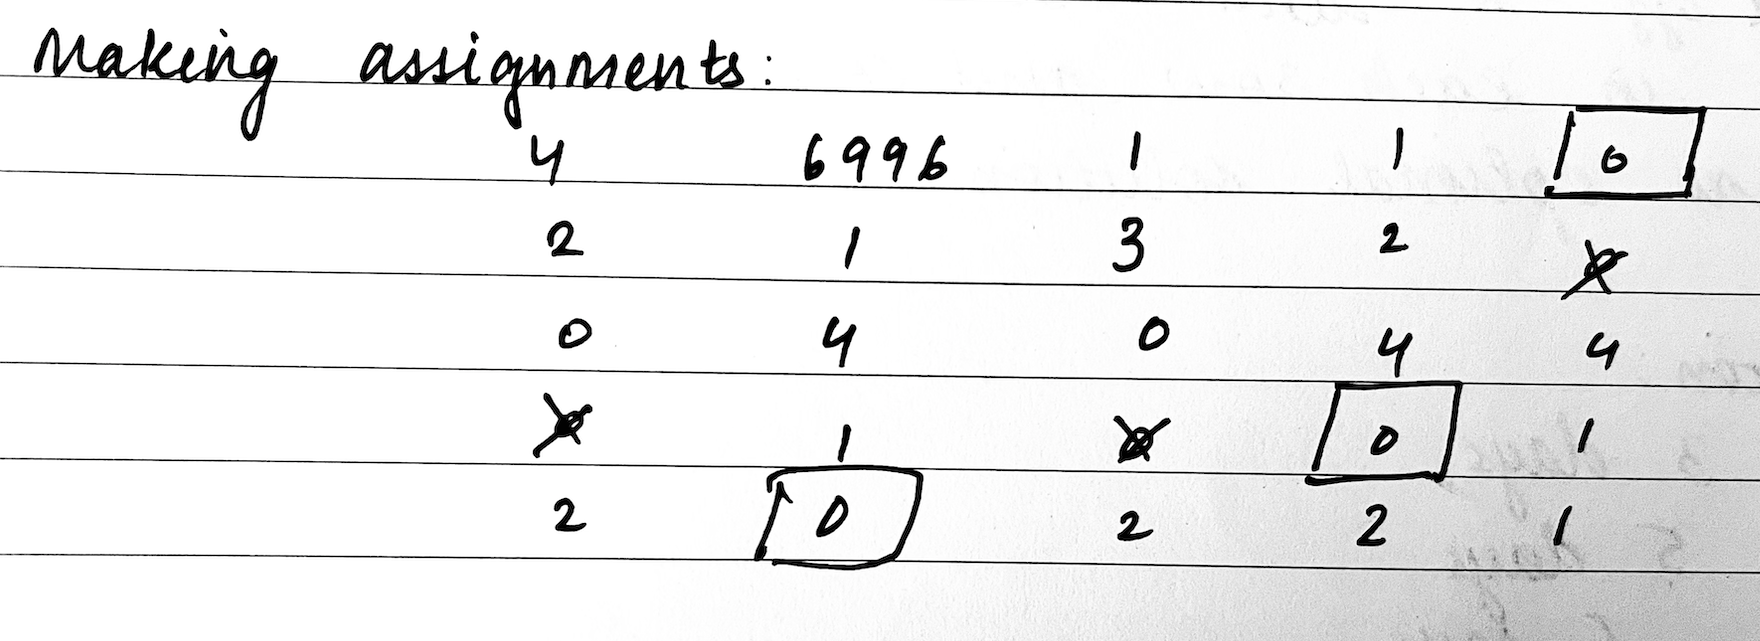 Making assignments:
4 6996 1 1 0
2 1 3 2 0
0 4 0 4 4
0 1 0 0 1
2 0 2 2 1